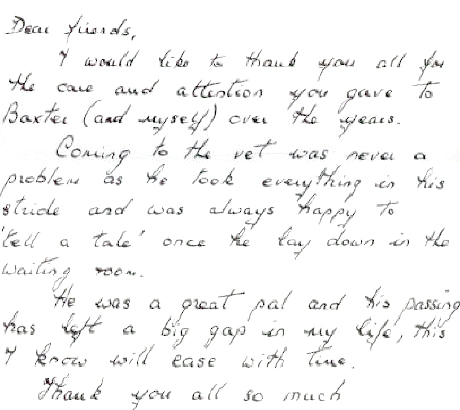 Dear friends,
I would like to thank you all for
the care and attention you gave to
Baxter (and myself) over the years.
Coming to the vet was never a
problem as he took everything in his
stride and was always happy to
'tell a tale' once he lay down in the
waiting room.
He was a great pal and his passing
has left a big gap in my life, this
I know will ease with time.
Thank you all so much